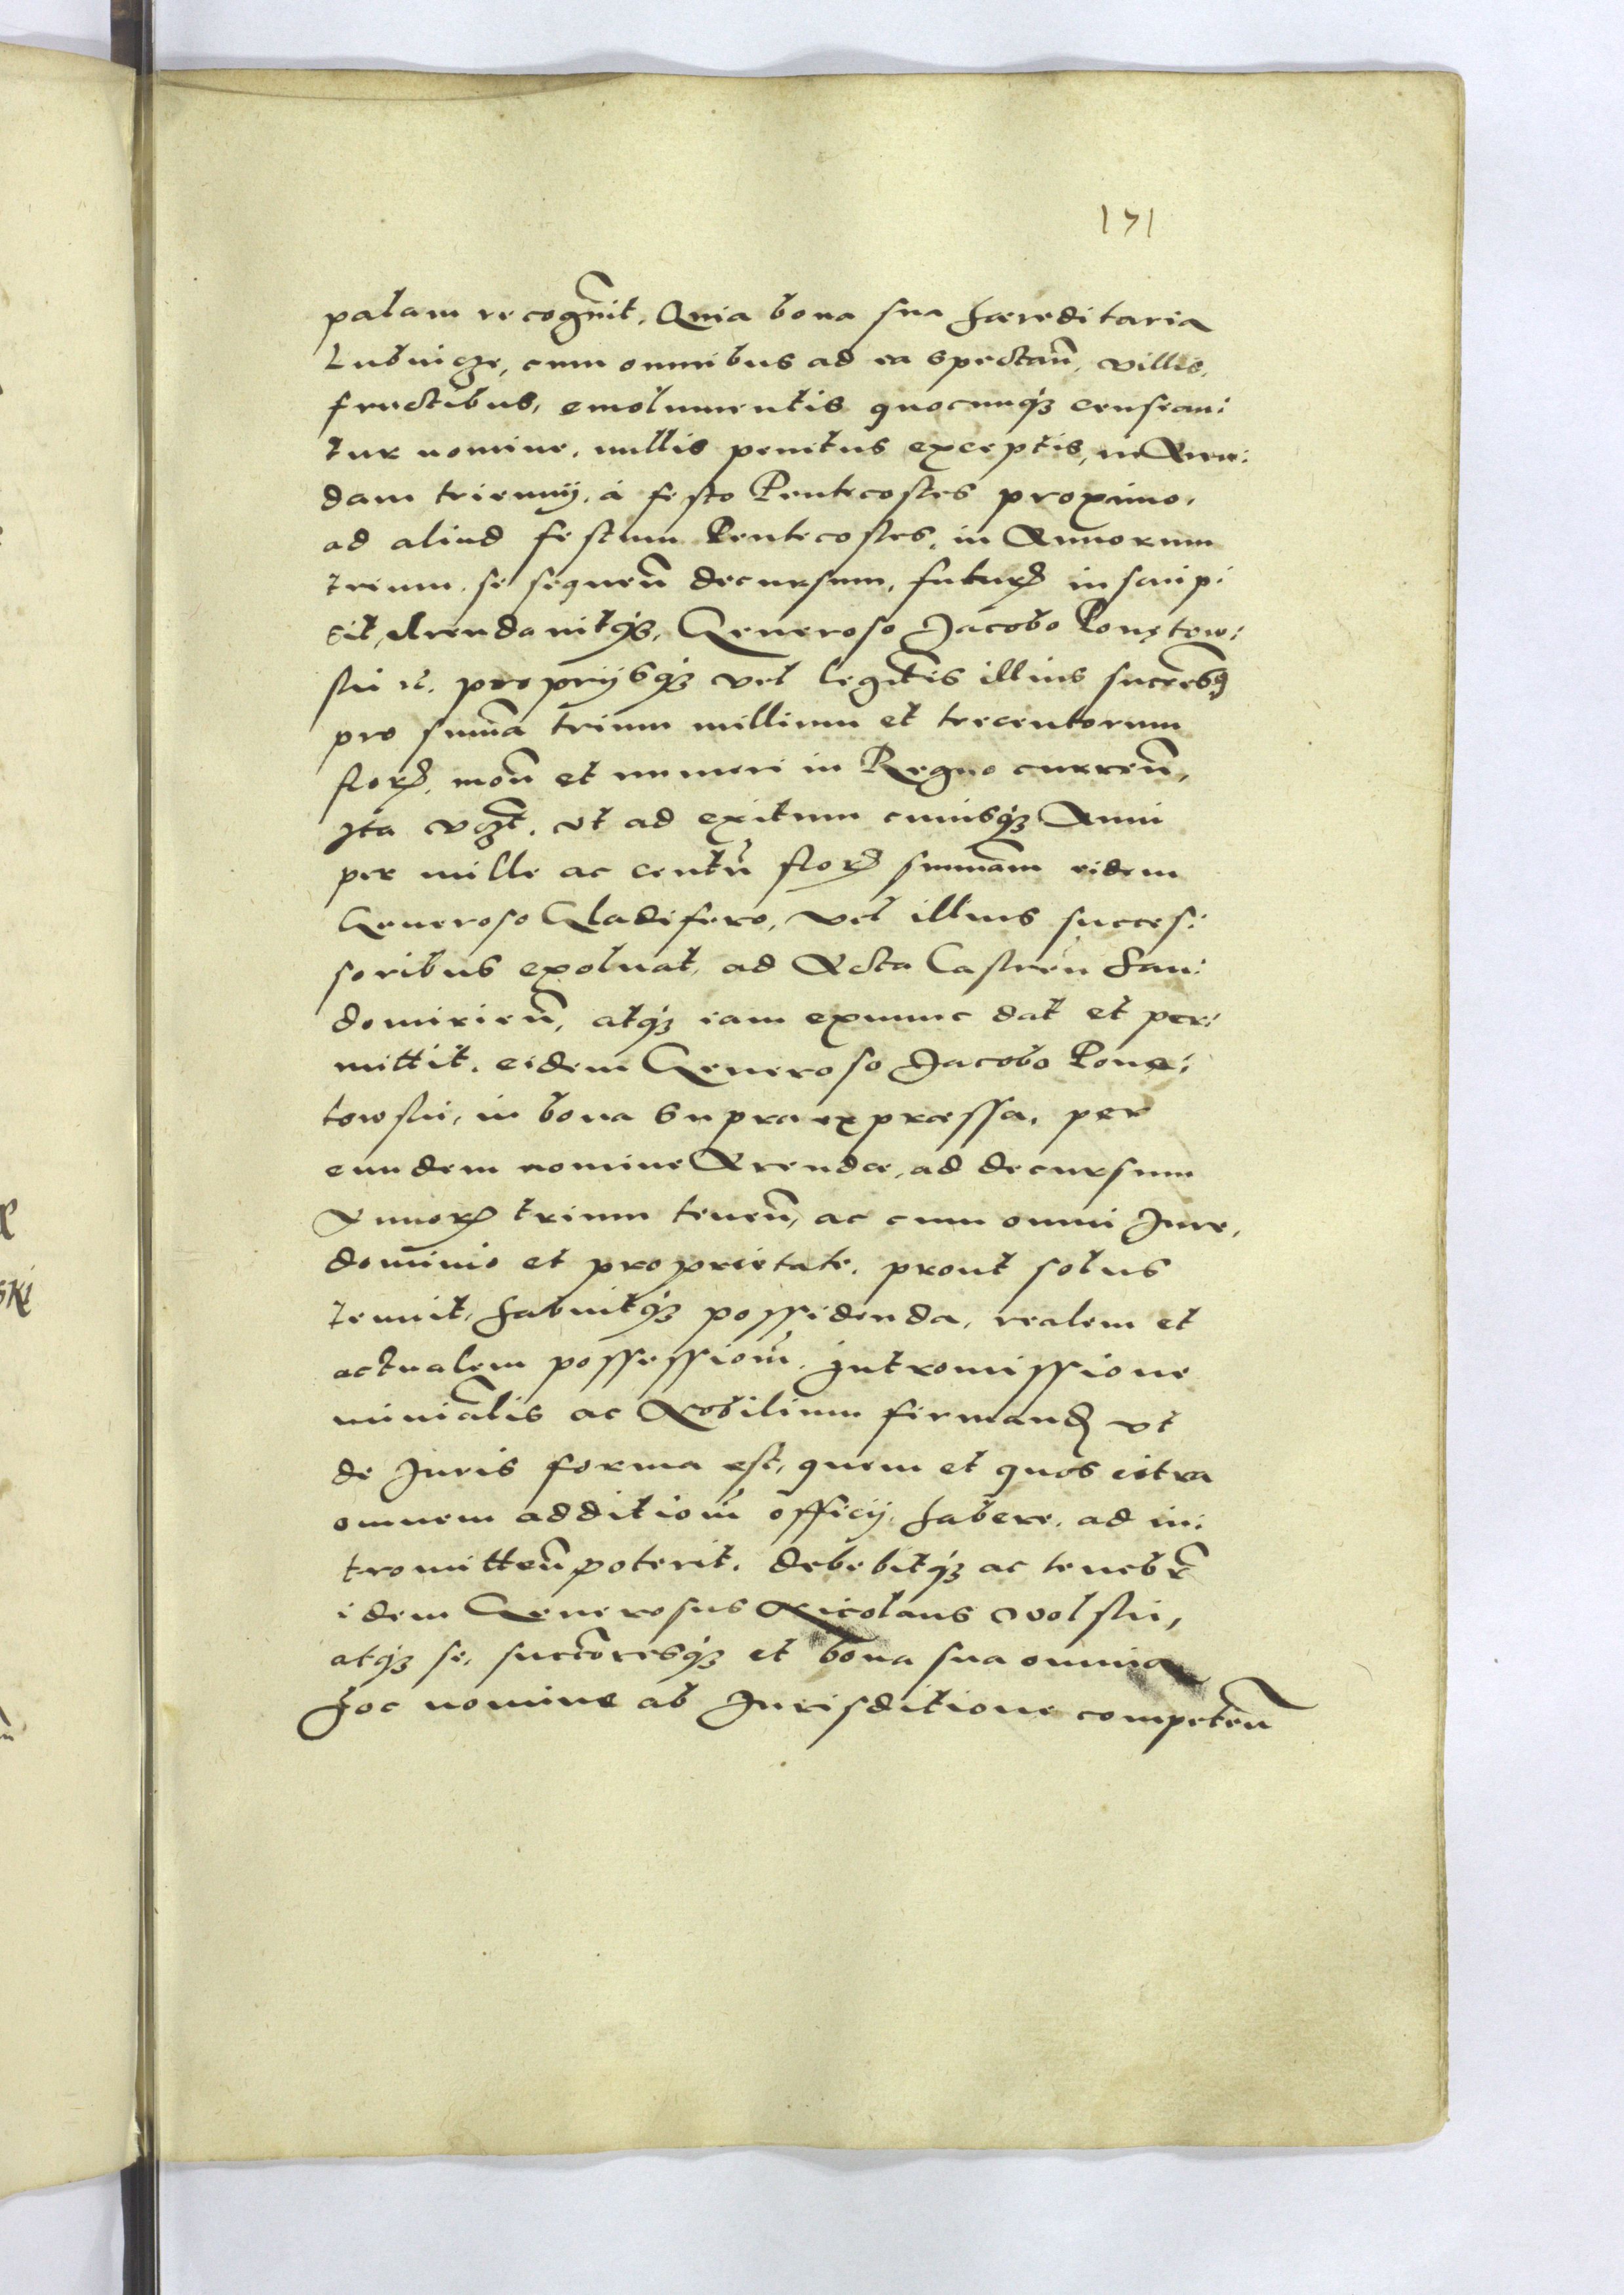 171
palam recognit, Quia bona sua haereditaria
Lubnicze, cum omnibus ad ea spectan̄, villis,
fructibus, emolumentis quocunq₃ censean:
tur nomine, nullis penitus exceptis, in Aren:
dam triennij, à festo Pentecostes proximo,
ad aliud festum Pentecostes, in Annorum
trium, se sequen̄ decursum, futurꝝ inscrip:
sit, Arendavitq₃, Generoso Jacobo Ponętow:
ski etc. proprijsq₃ vel legitis illius succrebꝫ
pro summa trium millium et trecentorum
florꝝ, mon̄ et numeri in Regno curren̄,
Ita vꝫt, vt ad exitum cuiusq₃ Anni
per mille ac centū florꝝ summam eidem
Generoso Gladifero, vel illius succes:
soribus exoluat, ad Acta Castren̄ San:
domirien̄, atq₃ iam exnunc dat et per:
mittit, eidem Generoso Jacobo Ponę:
towski, in bona supra expraessa, per
eundem nomine Arendae, ad decursum
Annorꝝ trium tenen̄, ac cum omni Jure,
dominio et proprietate, prout solus
tenuit, habuitq₃ possidenda, realem et
actualem possession̄, Intromissione
mini̅alis ac Nobilium firmand̄ vt
de Juris forma est, quem et quos citra
omnem addition̄ officij, habere, ad in:
tromitten̄ poterit, debebitq₃ ac tenebr̄
idem Generosus Nicolaus Wolski,
atq₃ se, succoresq₃ et bona sua omnia
hoc nomine ab Jurisditione competen̄